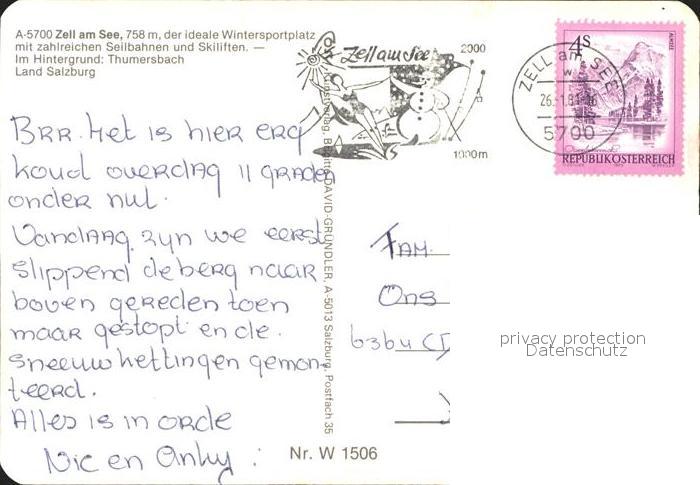 A-5700 Zell am See, 758 m, der ideale Wintersportplatz
mit zahlreichen Seilbahnen und Skiliften. —
Im Hintergrund: Thumersbach
Land Salzburg
Zell am See
2000
1000m
ZELL am SEE
5700
4S
ALMSEE
REPUBLIK ÖSTERREICH
Brr. Het is hier erg
koud overdag 11 graden
onder nul.
Vandaag zyn we eerst
slippend de berg naar
boven gereden toen
maar gestopt en de
sneeuwkettingen gemon-
teerd.
Alles is in orde
Nic en Anky.
Kunstverlag, Brigitte DAVID-GRÜNDLER, A-5013 Salzburg, Postfach 35
Fam.
Ons
6364 CJ
privacy protection
Datenschutz
Nr. W 1506